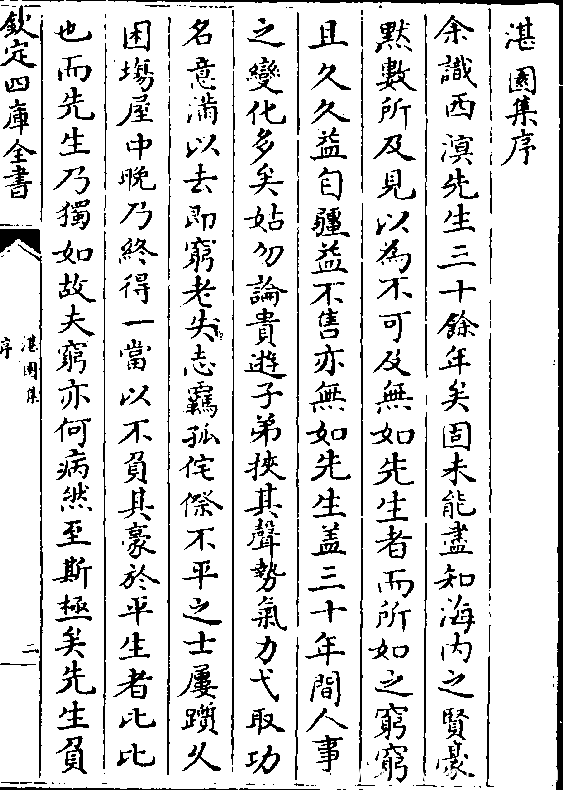 湛園集序
余識西溟先生三十餘年矣固未能盡知海内之賢豪
黙數所及見以為不可及無如先生者而所如之窮窮
且久久益自疆益不售亦無如先生盖三十年間人事
之變化多矣姑勿論貴遊子弟挾其聲勢氣力弋取功
名意滿以去即窮老失志羈孤侘傺不平之士屢躓久
困塲屋中晚乃終得一當以不負其豪於平生者比比
也而先生乃獨如故夫窮亦何病然至斯極矣先生負
欽定四庫全書
湛園集
序
二